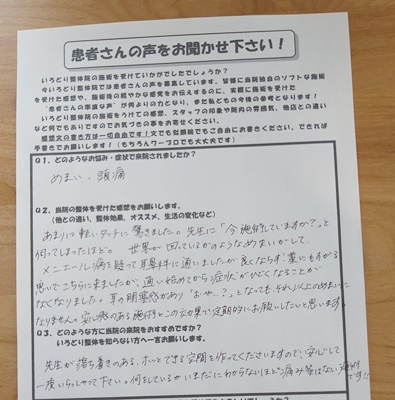 患者さんの声をお聞かせ下さい！
いろどり整体院の施術を受けていかがでしたでしょうか？
今いろどり整体院では患者さんの声を募集しています。皆様に当院独自のソフトな施術
を受けた感想や、施術後の軽やかな感覚をお伝えするのに、実際に施術を受けた
“患者さんの率直な声”が何よりの力となり、また私どもの今後の参考となります！
いろどり整体院の施術をうけての感想、スタッフの印象や院内の雰囲気、他店との違い
など何でもありですのでお気づきの事をお寄せください。
感想文の書き方は一切自由です！文でも似顔絵でもご自由にお書きください。できれば
手書きでお願いします！（もちろんワープロでも大丈夫です）
Q1．どのようなお悩み・症状で来院されましたか？
めまい、頭痛
Q2．当院の整体を受けた感想をお願いします。
（他との違い、整体効果、オススメ、生活の変化など）
あまりに軽いタッチに驚きました。先生に「今施術していますか？」と
伺ってしまったほど。世界が回っているかのようなめまいがして、
メニエール病を疑って耳鼻科に通いましたが良くならず、藁にもすがる
思いでこちらに来ましたが、通い始めてから症状がひどくなることが
なくなりました。耳の閉塞感があり「おや…？」となっても、それ以上のめまいに
なりません。安心感のある施術とこの効果で定期的にお願いしたいと思います。
Q3．どのような方に当院の来院をおすすめですか？
いろどり整体院を知らない方へ一言お願いします。
先生が落ち着きのある、ホッとできる空間を作ってくださいますので、安心して
一度いらしゃって下さい。何をしているかいまだにわからないほど痛み等はない施術
です!!